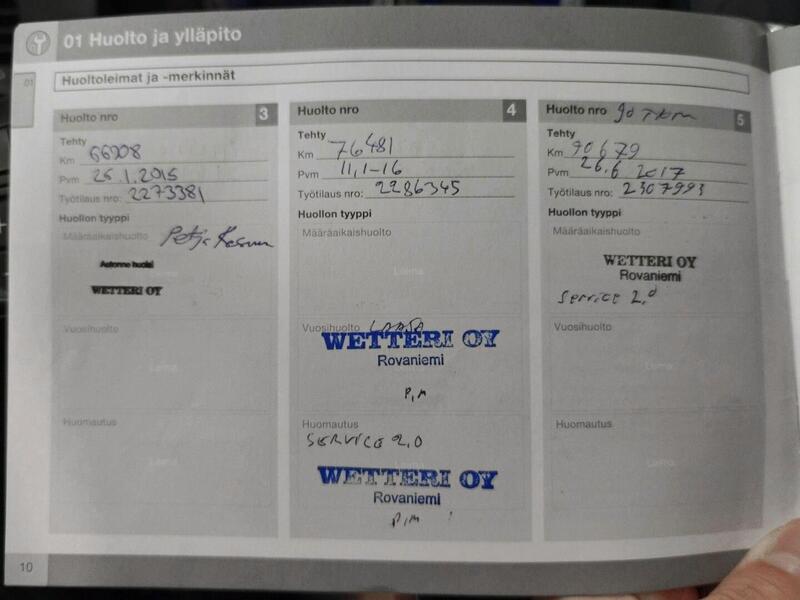 01 Huolto ja ylläpito
01
Huoltoleimat ja -merkinnät
Huolto nro 3
Tehty
Km 66908
Pvm 26.1.2015
Työtilaus nro: 2273381
Huollon tyyppi
Määräaikaishuolto
Autonne huolsi
WETTERI OY
Vuosihuolto
Leima
Huomautus
Leima
Huolto nro 4
Tehty
Km 76481
Pvm 11,1-16
Työtilaus nro: 2286345
Huollon tyyppi
Määräaikaishuolto
Leima
Vuosihuolto LAAJA
WETTERI OY
Rovaniemi
P,M
Huomautus
SERVICE 2,0
WETTERI OY
Rovaniemi
P,M
Huolto nro 90 TKM 5
Tehty
Km 90679
Pvm 26.6 2017
Työtilaus nro: 2307993
Huollon tyyppi
Määräaikaishuolto
WETTERI OY
Rovaniemi
Service 2,0
Vuosihuolto
Leima
Huomautus
Leima
10